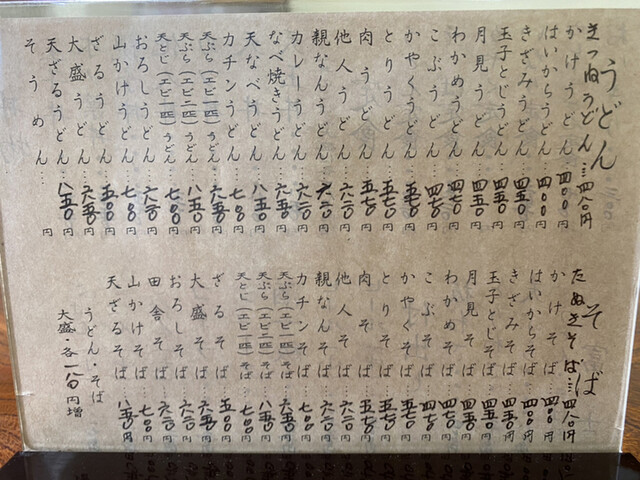 うどん
きつねうどん…四八〇円
かけうどん…四〇〇円
はいからうどん…四〇〇円
きざみうどん…四五〇円
玉子とじうどん…四五〇円
月見うどん…四五〇円
わかめうどん…四七〇円
こぶうどん…四七〇円
かやくうどん…五七〇円
とりうどん…五七〇円
肉うどん…五七〇円
他人うどん…六二〇円
親なんうどん…六二〇円
カレーうどん…六二〇円
なべ焼きうどん…六五〇円
天なべうどん…八五〇円
カチンうどん…七〇〇円
天ぷら(エビ一匹)うどん…六五〇円
天ぷら(エビ二匹)うどん…八五〇円
天とじ(エビ一匹)うどん…七〇〇円
おろしうどん…六二〇円
山かけうどん…七〇〇円
ざるうどん…円
大盛うどん…六五〇円
天ざるうどん…八五〇円
そうめん…円
そば
たぬきそば…四八〇円
かけそば…四〇〇円
はいからそば…四〇〇円
きざみそば…四五〇円
玉子とじそば…四五〇円
月見そば…四五〇円
わかめそば…四七〇円
こぶそば…四七〇円
かやくそば…五七〇円
とりそば…五七〇円
肉そば…五七〇円
他人そば…六二〇円
親なんそば…六二〇円
カチンそば…七〇〇円
天ぷら(エビ一匹)そば…六五〇円
天ぷら(エビ二匹)そば…八五〇円
天とじ(エビ一匹)そば…七〇〇円
ざるそば…円
大盛そば…六五〇円
おろしそば…六二〇円
田舎そば…七〇〇円
山かけそば…七〇〇円
天ざるそば…八五〇円
うどん・そば
大盛・各一八〇円増